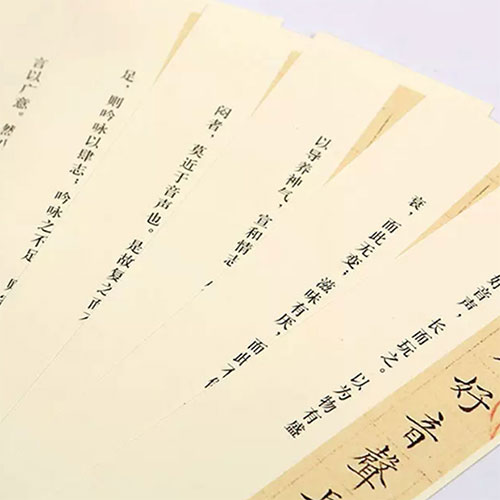 好音聲
音声，长而玩之。以为物有盛
衰，而此无变；滋味有厌，而此不
以导养神气，宣和情志，
闷者，莫近于音声也。是故复之而
足，则吟咏以肆志；吟咏之不足，
言以广意。然